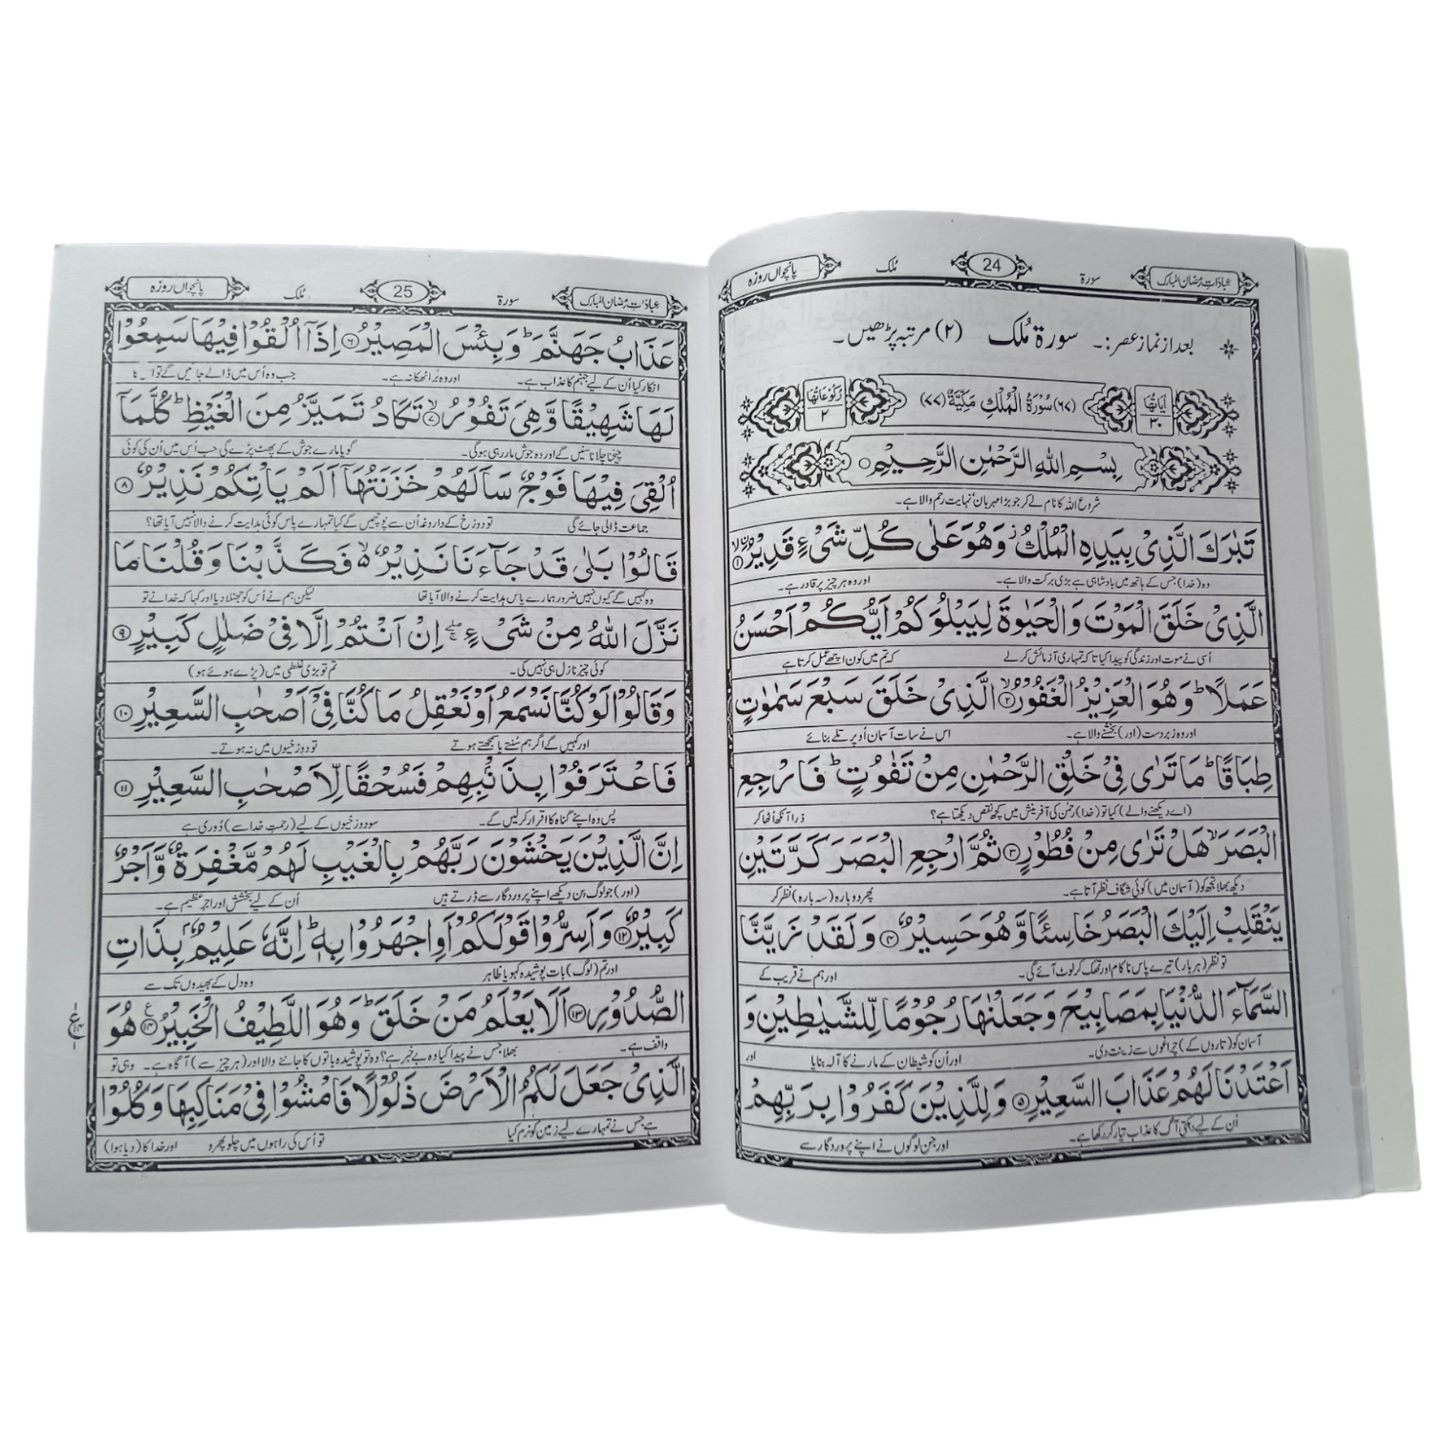 عبادات رمضان المبارک
سورۃ
24
مُلک
پانچواں روزہ
بعد از نماز عصر:۔ سورۃ مُلک (۲) مرتبہ پڑھیں۔
اٰیَاتُهَا ۳۰
(۶۷) سُوْرَةُ الْمُلْكِ مَكِّيَّةٌ (۷۷)
رُكُوْعَاتُهَا ۲
بِسْمِ اللهِ الرَّحْمٰنِ الرَّحِيْمِ
شروع اللہ کا نام لے کر جو بڑا مہربان نہایت رحم والا ہے۔
تَبٰرَكَ الَّذِيْ بِيَدِهِ الْمُلْكُ ز وَهُوَ عَلٰى كُلِّ شَيْءٍ قَدِيْرُ ۙ﴿۱﴾
وہ (خدا) جس کے ہاتھ میں بادشاہی ہے بڑی برکت والا ہے۔ اور وہ ہر چیز پر قادر ہے۔
الَّذِيْ خَلَقَ الْمَوْتَ وَالْحَيٰوةَ لِيَبْلُوَكُمْ اَيُّكُمْ اَحْسَنُ
اُسی نے موت اور زندگی کو پیدا کیا تاکہ تمہاری آزمائش کرے کہ تم میں کون اچھے عمل کرتا ہے
عَمَلًا ؕ وَهُوَ الْعَزِيْزُ الْغَفُوْرُ ۙ﴿۲﴾ الَّذِيْ خَلَقَ سَبْعَ سَمٰوٰتٍ
اور وہ زبردست (اور) بخشنے والا ہے۔ اس نے سات آسمان اُوپر تلے بنائے
طِبَاقًا ؕ مَا تَرٰى فِيْ خَلْقِ الرَّحْمٰنِ مِنْ تَفٰوُتٍ ؕ فَارْجِعِ
(اے دیکھنے والے) کیا تو (خدا) رحمٰن کی آفرینش میں کچھ نقص دیکھتا ہے؟ ذرا آنکھ اُٹھا کر
الْبَصَرَ ۙ هَلْ تَرٰى مِنْ فُطُوْرٍ ﴿۳﴾ ثُمَّ ارْجِعِ الْبَصَرَ كَرَّتَيْنِ
دیکھ بھلا تجھ کو (آسمان میں) کوئی شگاف نظر آتا ہے۔ پھر دوبارہ (سہ بارہ) نظر کر
يَنْقَلِبْ اِلَيْكَ الْبَصَرُ خَاسِئًا وَّهُوَ حَسِيْرٌ ﴿۴﴾ وَلَقَدْ زَيَّنَّا
تو نظر (ہر بار) تیرے پاس ناکام اور تھک کر لوٹ آئے گی۔ اور ہم نے قریب کے
السَّمَآءَ الدُّنْيَا بِمَصَابِيْحَ وَجَعَلْنٰهَا رُجُوْمًا لِّلشَّيٰطِيْنِ وَ
آسمان کو (تاروں کے) چراغوں سے زینت دی۔ اور اُن کو شیطان کے مارنے کا آلہ بنایا اور
اَعْتَدْنَا لَهُمْ عَذَابَ السَّعِيْرِ ﴿۵﴾ وَلِلَّذِيْنَ كَفَرُوْا بِرَبِّهِمْ
اُن کے لیے دہکتی آگ کا عذاب تیار کر رکھا ہے۔ اور جن لوگوں نے اپنے پروردگار سے
عبادات رمضان المبارک
سورۃ
25
مُلک
پانچواں روزہ
عَذَابُ جَهَنَّمَ ؕ وَبِئْسَ الْمَصِيْرُ ﴿۶﴾ اِذَآ اُلْقُوْا فِيْهَا سَمِعُوْا
انکار کیا اُن کے لیے جہنم کا عذاب ہے۔ اور وہ بُرا ٹھکانہ ہے۔ جب وہ اُس میں ڈالے جائیں گے تو اس کا
لَهَا شَهِيْقًا وَّهِيَ تَفُوْرُ ۙ﴿۷﴾ تَكَادُ تَمَيَّزُ مِنَ الْغَيْظِ ؕ كُلَّمَآ
چیخنا چلانا سنیں گے اور وہ جوش مار رہی ہوگی۔ گویا مارے جوش کے پھٹ پڑے گی جب اُس میں اُن کی کوئی
اُلْقِيَ فِيْهَا فَوْجٌ سَاَلَهُمْ خَزَنَتُهَآ اَلَمْ يَاْتِكُمْ نَذِيْرٌ ﴿۸﴾
جماعت ڈالی جائے گی تو دوزخ کے داروغہ اُن سے پُوچھیں گے کیا تمہارے پاس کوئی ہدایت کرنے والا نہیں آیا تھا؟
قَالُوْا بَلٰى قَدْ جَآءَنَا نَذِيْرٌ ۙ فَكَذَّبْنَا وَقُلْنَا مَا
وہ کہیں گے کیوں نہیں ضرور ہمارے پاس ہدایت کرنے والا آیا تھا لیکن ہم نے اُس کو جھٹلا دیا اور کہا کہ خدا نے تو
نَزَّلَ اللهُ مِنْ شَيْءٍ ۖ اِنْ اَنْتُمْ اِلَّا فِيْ ضَلٰلٍ كَبِيْرٍ ﴿۹﴾
کوئی چیز نازل ہی نہیں کی۔ تم تو بڑی غلطی میں (پڑے ہوئے ہو)
وَقَالُوْا لَوْ كُنَّا نَسْمَعُ اَوْ نَعْقِلُ مَا كُنَّا فِيْٓ اَصْحٰبِ السَّعِيْرِ ﴿۱۰﴾
اور کہیں گے اگر ہم سُنتے یا سمجھتے ہوتے تو دوزخیوں میں نہ ہوتے۔
فَاعْتَرَفُوْا بِذَنْۢبِهِمْ فَسُحْقًا لِّاَصْحٰبِ السَّعِيْرِ ﴿۱۱﴾
پس وہ اپنے گناہ کا اقرار کر لیں گے۔ سو دوزخیوں کے لیے (رحمت خدا سے) دُوری ہے
اِنَّ الَّذِيْنَ يَخْشَوْنَ رَبَّهُمْ بِالْغَيْبِ لَهُمْ مَّغْفِرَةٌ وَّاَجْرٌ
(اور) جو لوگ بن دیکھے اپنے پروردگار سے ڈرتے ہیں اُن کے لیے بخشش اور اجر عظیم ہے۔
كَبِيْرٌ ﴿۱۲﴾ وَاَسِرُّوْا قَوْلَكُمْ اَوِ اجْهَرُوْا بِهٖ ؕ اِنَّهٗ عَلِيْمٌۢ بِذَاتِ
اور تم (لوگ) بات پوشیدہ کہو یا ظاہر وہ دل کے بھیدوں تک سے
الصُّدُوْرِ ﴿۱۳﴾ اَلَا يَعْلَمُ مَنْ خَلَقَ ؕ وَهُوَ اللَّطِيْفُ الْخَبِيْرُ ﴿۱۴﴾ هُوَ
واقف ہے۔ بھلا جس نے پیدا کیا وہ بے خبر ہے؟ وہ تو پوشیدہ باتوں کا جاننے والا اور (ہر چیز سے) آگاہ ہے۔ وہی تو
الَّذِيْ جَعَلَ لَكُمُ الْاَرْضَ ذَلُوْلًا فَامْشُوْا فِيْ مَنَاكِبِهَا وَكُلُوْا
ہے جس نے تمہارے لیے زمین کو نرم کیا تو اُس کی راہوں میں چلو پھرو اور خدا کا (دیا ہوا)